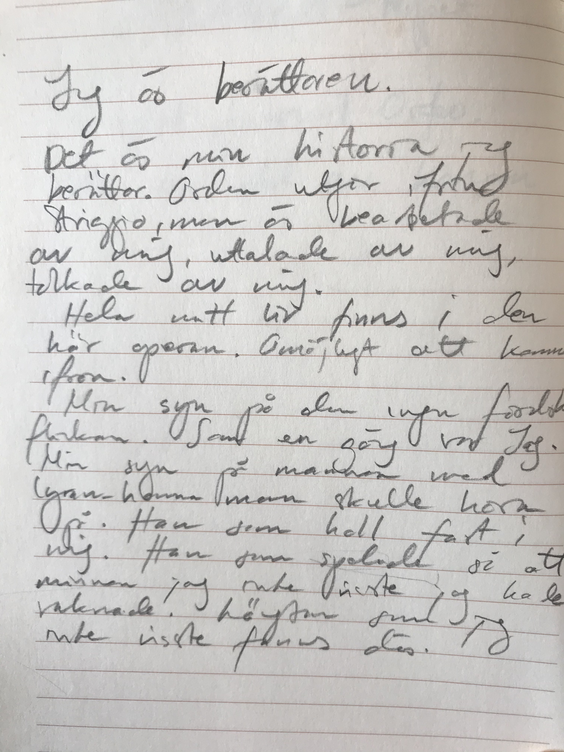 Jag är berättaren.
Det är min historia jag
berättar. Orden utgör ifrånd
Striggio, men är bearbetade
av mig, uttalade av mig,
tolkade av mig.
Hela mitt liv finns i den
här operan. Omöjligt att komm
ifrån.
Min syn på den unga
flickan. Som en gång var Jag.
Min syn på mannen med
lyran - honna man skulle höra
på. Han som höll fast i
mig. Han som spelade så att
minnen jag inte visste jag hade
vaknade. som jag
inte visste fanns där.